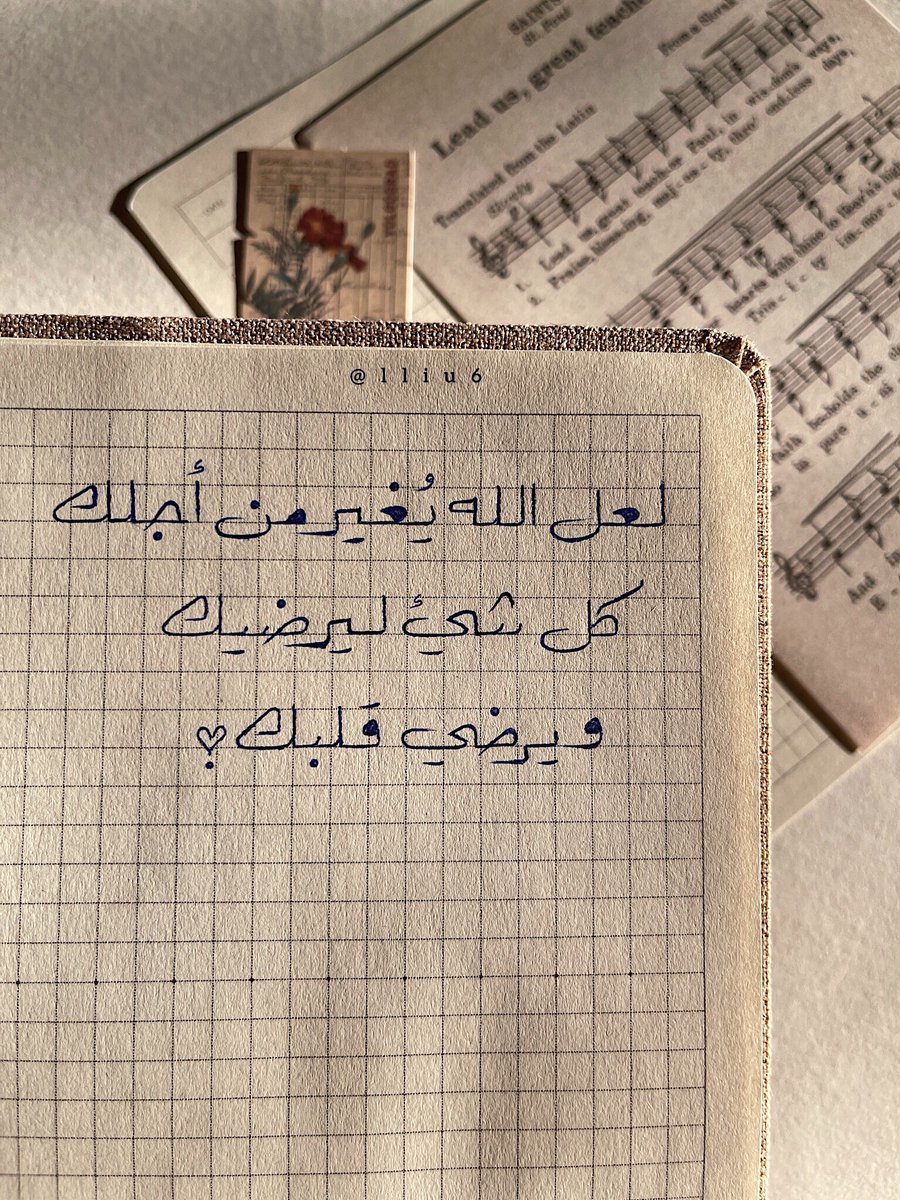 SAINTS
St. Paul
Lead us, great teacher
Translated from the Latin
From a Great
Slowly
1. Lead us, great teach-er Paul, in wis-dom's ways,
2. Praise, blessing, maj-es-ty, thro' end-less days,
hearts with thine to Heav'n's high
Trin-i-ty im-mor-
faith beholds the
And in
@lliu6
لعل الله يُغير من أجلك
كل شيئ ليرضيك
ويرضي قلبك♡